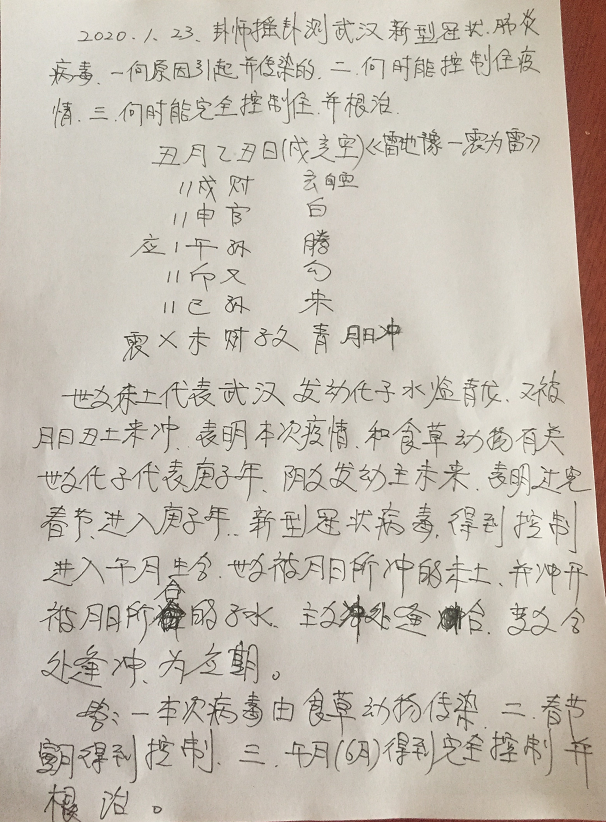 2020.1.23、卦师摇卦测武汉新型冠状.肺炎
病毒.一何原因引起并传染的.二.何时能控制住疫
情.三.何时能完全控制住.并根治.
丑月乙丑日(戌亥空)《雷地豫一震为雷》
〃戌财 玄
〃申官 白
应 1 午孙 腾
〃卯父 勾
〃巳孙 朱
震 X 未财子父 青 月日冲
世爻未土代表武汉 发动化子水临青龙.又被
月日丑土来冲.表明本次疫情.和食草动物有关
世爻化子代表庚子年.阴爻发动主未来.表明过完
春节.进入庚子年.新型冠状病毒.得到控制
进入午月生合.世爻被月日所冲的未土.并冲开
被月日所合的子水.主爻冲处逢合.变爻合
处逢冲.为应期。
答:一本次病毒由食草动物传染.二.春节
期得到控制.三.午月(6月)得到完全控制并
根治。